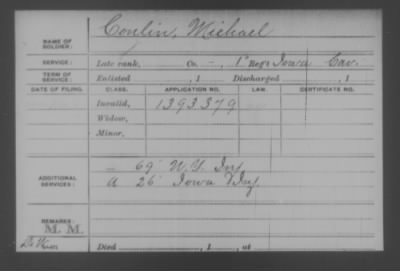 Conlin, Michael
NAME OF SOLDIER:
SERVICE: Late rank, Co. –, 1" Reg't Iowa Cav.
TERM OF SERVICE: Enlisted , 1 Discharged , 1
DATE OF FILING. CLASS. APPLICATION NO. LAW. CERTIFICATE NO.
Invalid, 1393379
Widow,
Minor,
– 69" N.Y. Inf
ADDITIONAL SERVICES: A 26" Iowa Inf.
REMARKS:
M. M.
Died , 1 , at